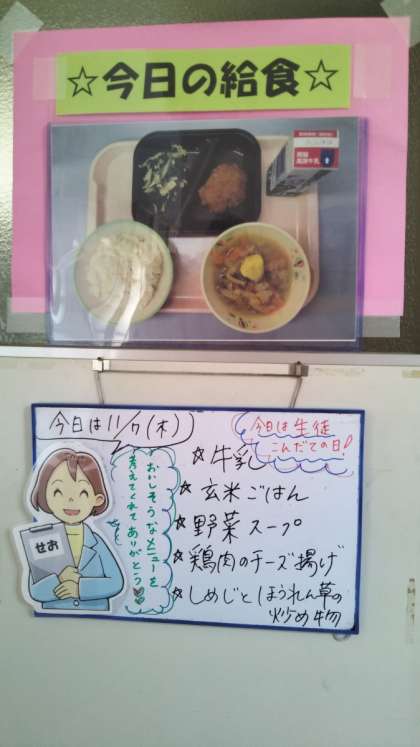 ☆今日の給食☆
今日は11/7(木)
今日は生徒
こんだての日!
☆牛乳
☆玄米ごはん
☆野菜スープ
☆鶏肉のチーズ揚げ
☆しめじとほうれん草の
炒め物
おいしそうなメニューを
考えてくれて ありがとう
せお